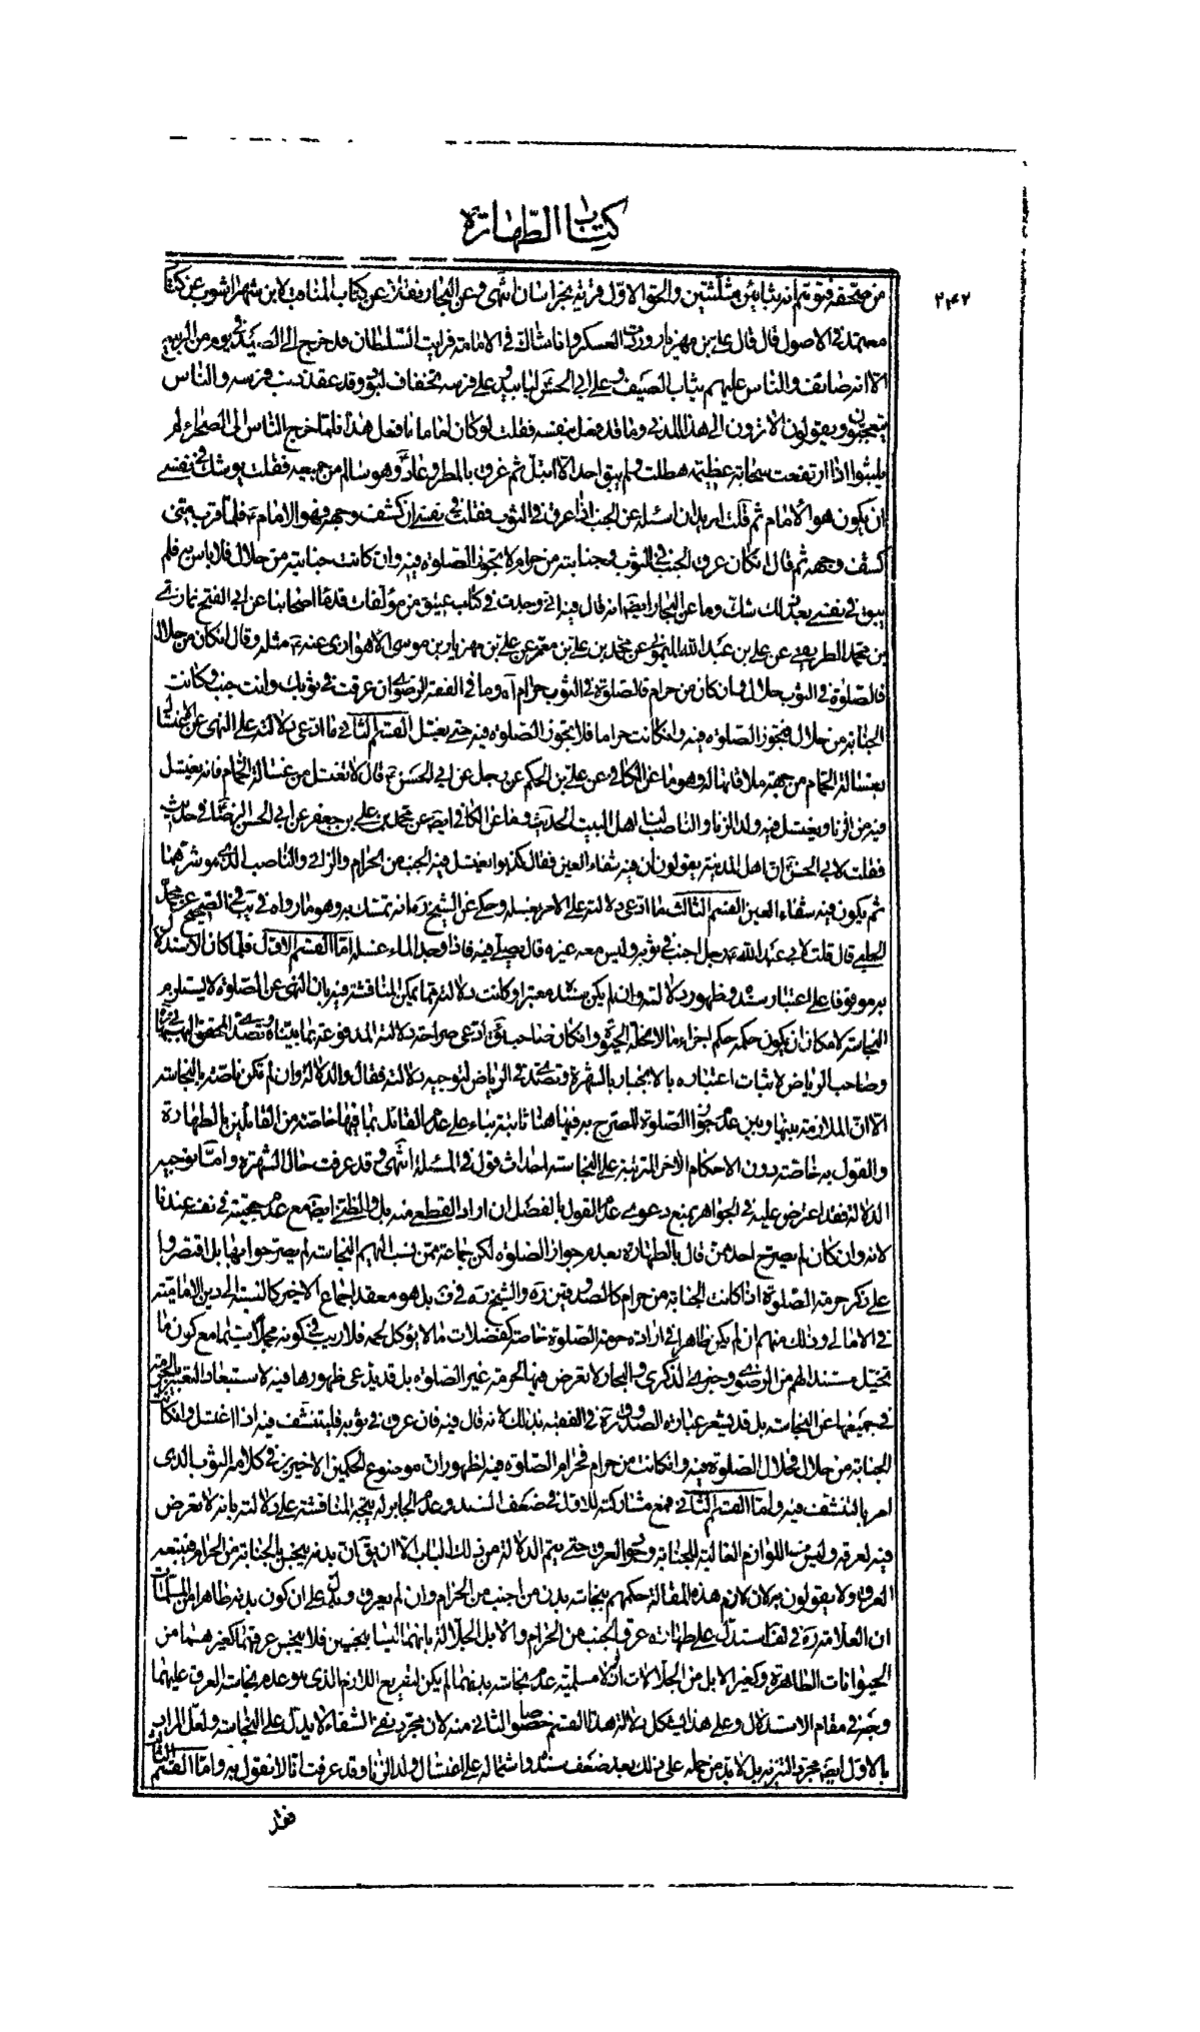 كتاب الطهارة
۲۴۲
من صحفه فتوهم انه بثابين مثلثتين والحق الاول قرية بخراسان انتهى وعن البحار نقلا عن كتاب المناقب لابن شهراشوب عن كتاب
معتمد في الاصول قال قال علي بن مهزيار وردت العسكر وانا شاك في الامامة فرايت السلطان قد خرج الى الصيد في يوم من الربيع
الا انه صائف والناس عليهم ثياب الصيف وعلى ابي الحسن لبابيد وعلى فرسه تجفاف لبود وقد عقد ذنب فرسه والناس
يتعجبون ويقولون الا ترون الى هذا المدني وما قد فعل بنفسه فقلت لو كان اماما ما فعل هذا فلما خرج الناس الى الصحراء لم
يلبثوا اذا ارتفعت سحابة عظيمة هطلت فلم يبق احد الا ابتل ثم غرق بالمطر وعاد وهو سالم من جميعه فقلت يوشك في نفسي
ان يكون هو الامام ثم قلت اريد ان اسئله عن الجنب اذا عرق في الثوب فقلت في نفسي ان كشف وجهه فهو الامام ع فلما قرب مني
كشف وجهه ثم قال ان كان عرق الجنب في الثوب وجنابته من حرام لا يجوز الصلوة فيه وان كانت جنابته من حلال فلا باس به فلم
يبق في نفسي بعد ذلك شك وما عن البحار ايضا انه قال فيه اني وجدت في كتاب عتيق من مؤلفات قدماء اصحابنا عن ابي الفتح غازي
بن محمد الطريفي عن علي بن عبد الله الميموني عن محمد بن علي بن معمر عن علي بن مهزيار بن موسى الاهوازي عنه ع مثله وقال ان كان من حلال
فالصلوة في الثوب حلال وان كان من حرام فالصلوة في الثوب حرام آه وما في الفقه الرضوي ان عرقت في ثوبك وانت جنب وكانت
الجنابة من حلال فتجوز الصلوة فيه وان كانت حراما فلا تجوز الصلوة فيه حتى يغسل القسم الثاني ما ادعي دلالته على النهي عن الاغتسال
بغسالة الحمام من جهة ملاقاتها له وهو ما عن الكافي عن علي بن الحكم عن رجل عن ابي الحسن ع قال لا تغتسل من غسالة الحمام فانه يغتسل
فيه من الزنا ويغتسل فيه ولد الزنا والناصب لنا اهل البيت الحديث وما عن الكافي ايضا عن محمد بن علي بن جعفر عن ابي الحسن الرضا في حديث
فقلت لابي الحسن ان اهل المدينة يقولون ان فيه شفاء العين فقال كذبوا يغتسل فيه الجنب من الحرام والزاني والناصب الذي هو شرهما
ثم يكون فيه شفاء العين القسم الثالث ما ادعي دلالته على الامر بغسله وحكي عن الشيخ ره انه تمسك به وهو ما رواه في يب في الصحيح عن محمد
الحلبي قال قلت لابي عبد الله ع رجل اجنب في ثوبه وليس معه غيره قال يصلي فيه فاذا وجد الماء غسله اما القسم الاول فلما كان الاستدلال
به موقوفا على اعتبار سنده وظهور دلالته وان لم يكن سنده معتبرا وكانت دلالته مما يمكن المناقشة فيه بان النهي عن الصلوة لا يستلزم
النجاسة لامكان ان يكون حكمه حكم اجزاء ما لا تحله الحيوة وان كان صاحب ئق ادعى صراحة دلالته المدفوعة بما بيناه وتصدى المحقق البهبهاني
وصاحب الرياض لاثبات اعتباره بالانجبار بالشهرة وتصدى في الرياض لتوجيه دلالته فقال والدلالة وان لم تكن ناصة بالنجاسة
الا ان الملازمة بينها وبين عدم جواز الصلوة المصرح به فيها هنا ثابتة بناء على عدم القائل بما فيها خاصة من القائلين بالطهارة
والقول به خاصة دون الاحكام الاخر المترتبة على النجاسة احداث قول في المسئلة انتهى وقد عرفت حال الشهرة واما توجيه
الدلالة فقد اعترض عليه في الجواهر بمنع دعوى عدم القول بالفصل ان اراد القطعي منه بل والظني ايضا مع عدم حجيته في نفسه عندنا
لانه وان كان لم يصرح احد ممن قال بالطهارة بعدم جواز الصلوة لكن جماعة ممن نسب اليهم النجاسة لم يصرحوا بها بل اقتصروا
على ذكر حرمة الصلوة اذا كانت الجنابة من حرام كالصدوقين ره والشيخ ره في ف بل هو معقد اجماع الاخير كالنسبة الى دين الامامية
في الامالي وذلك منهم ان لم يكن ظاهرا في ارادة حرمة الصلوة خاصة كفضلات ما لا يؤكل لحمه فلا ريب في كونه مجملا سيما مع كون ما
تخيل مستندا لهم من الرضوي وخبري الذكرى والبحار لا تعرض فيها لحرمة غير الصلوة بل قد يدعى ظهورها فيه لاستبعاد التعبير بالحرمة
في جميعها عن النجاسة بل قد يشعر عبارة الصدوق ره في الفقيه بذلك لانه قال فيه فان عرق في ثوبه فليتنشف فيه اذا اغتسل وان كانت
الجنابة من حلال فحلال الصلوة فيه وان كانت من حرام فحرام الصلوة فيه لظهور ان موضوع الحكمين الاخيرين في كلامه الثوب الذي
امر بالتنشف فيه واما القسم الثاني فمع مشاركته للاول في ضعف السند وعدم الجابر له يتجه المناقشة على دلالته بانه لا تعرض
فيه لعرقه وليس من اللوازم الغالبة للجنابة وجود العرق حتى يتم الدلالة من ذلك الباب الا ان يقال ان بدنه ينجس بالجنابة من الحرام فيتبعه
العرق ولا يقولون به لان لازم هذه المقالة حكمهم بنجاسة بدن من اجنب من الحرام وان لم يعرق ويدل على ان كون بدنه طاهرا من المسلمات
ان العلامة ره في لف استدل على طهارة عرق الجنب من الحرام والابل الجلالة بانهما ليسا بنجسين فلا ينجس عرقهما كغيرهما من
الحيوانات الطاهرة وكغير الابل من الجلالات اذ لولا مسلمية عدم نجاسة بدنهما لم يكن لتفريع اللازم الذي هو عدم نجاسة العرق عليهما
وجه في مقام الاستدلال وعلى هذا فيشكل دلالة هذا القسم خصوصا الثاني منه لان مجرد نفي الشفاء لا يدل على النجاسة ولعل المراد
بالاول ايضا مجرد التنزيه بل لا بد من حمله على ذلك بعد ضعف سنده واشتماله على اغتسال ولد الزنا وقد عرفت انا لا نقول به واما القسم الثالث
فقد